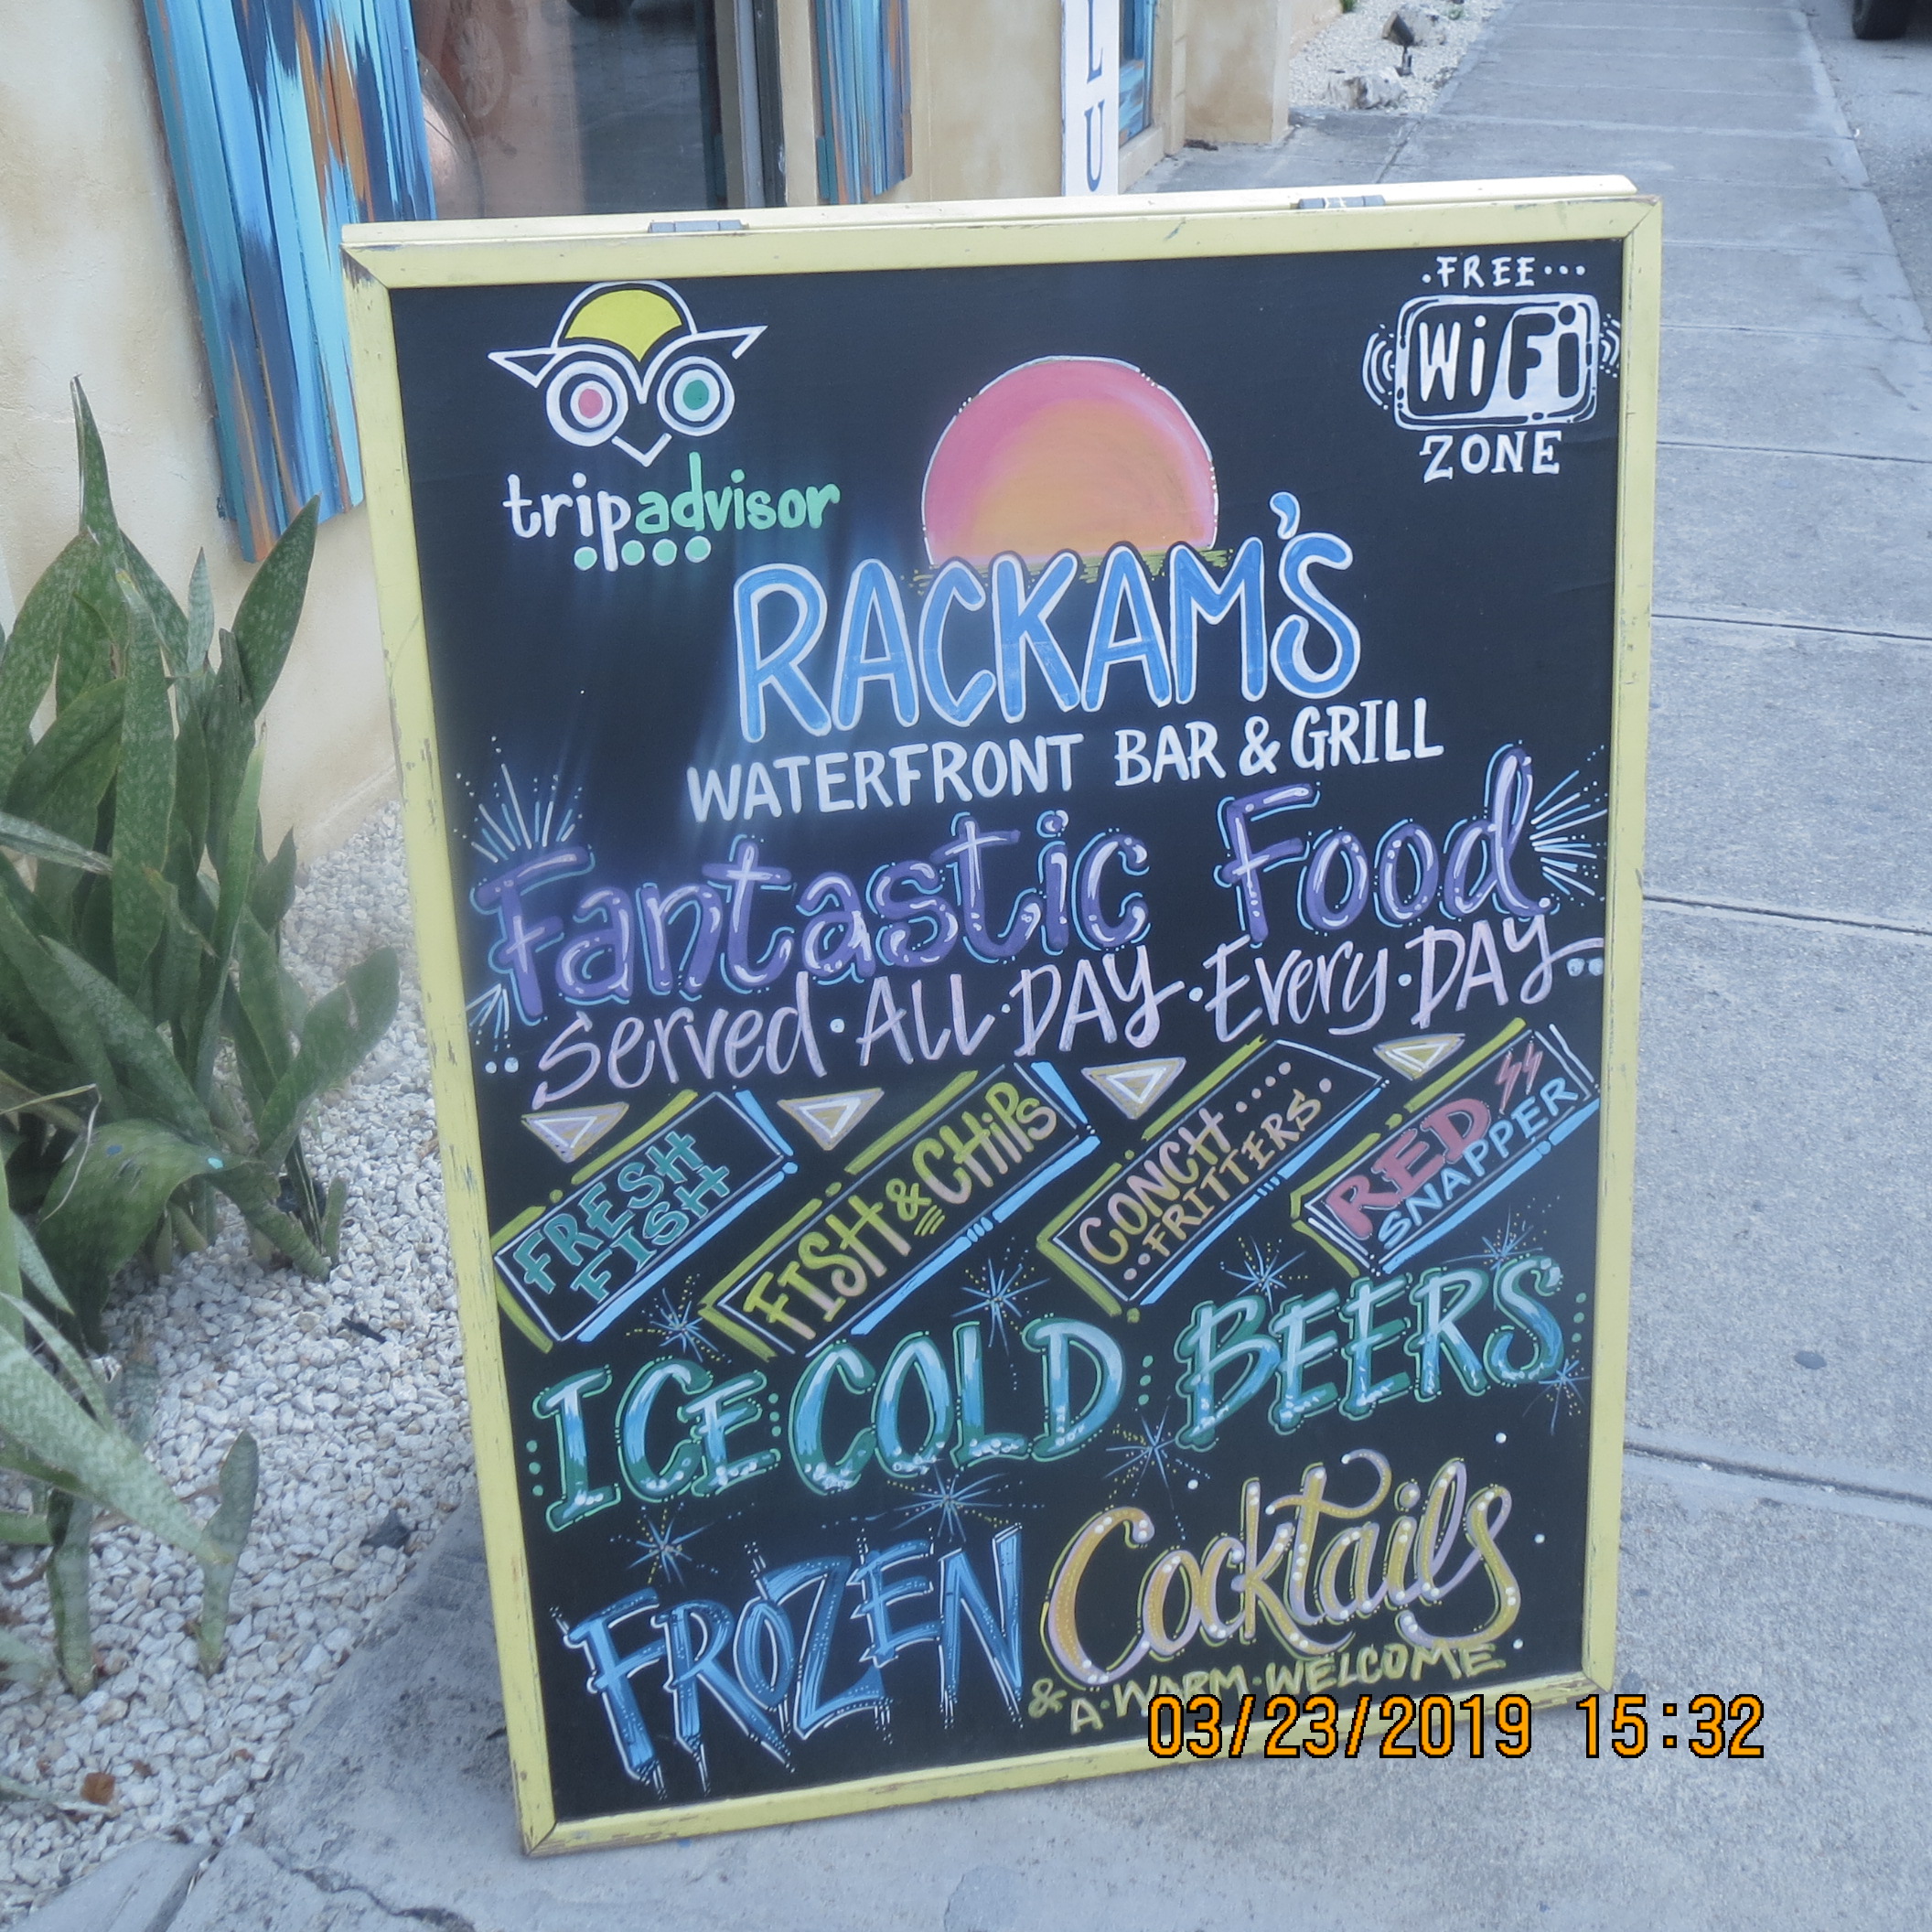 LU
·FREE···
WiFi
ZONE
tripadvisor
RACKAM'S
WATERFRONT BAR & GRILL
Fantastic Food
Served·ALL·DAY·Every·DAY
FRESH
FISH
FISH & CHIPS
CONCH....
..FRITTERS.
RED
SNAPPER
ICE COLD BEERS
FROZEN Cocktails
& A·WARM·WELCOME
03/23/2019 15:32